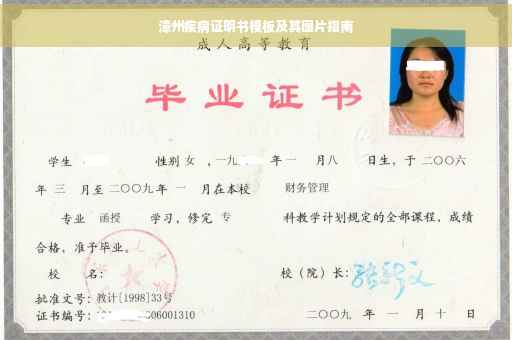 漳州疾病证明书模板及其图片指南
成人高等教育
毕业证书
学生 性别 女 ,一九 年 一 月 八 日生,于 二〇〇六
年 三 月至 二〇〇九 年 一 月在本校 财务管理
专业 函授 学习,修完 专 科教学计划规定的全部课程,成绩
合格,准予毕业。
校 名: 校(院)长:
批准文号:教计[1998]33号
证书编号: 06001310 二〇〇九 年 一 月 十 日